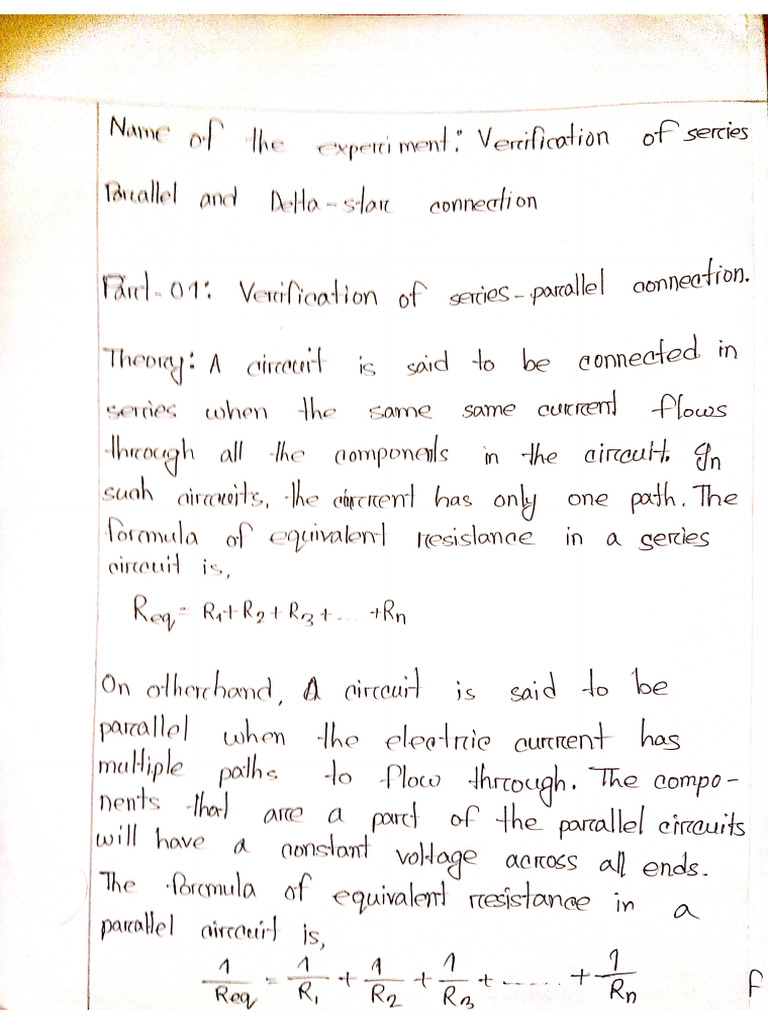 Name of the experiment: Verification of series
Parallel and Delta-star connection
Part-01: Verification of series-parallel connection.
Theory: A circuit is said to be connected in
series when the same same current flows
through all the components in the circuit. In
such circuits, the current has only one path. The
formula of equivalent resistance in a series
circuit is,
Req = R1+R2+R3+.....+Rn
On otherhand, A circuit is said to be
parallel when the electric current has
multiple paths to flow through. The compo-
nents that are a part of the parallel circuits
will have a constant voltage across all ends.
The formula of equivalent resistance in a
parallel circuit is,
1/Req = 1/R1 + 1/R2 + 1/R3 + ...... + 1/Rn
F